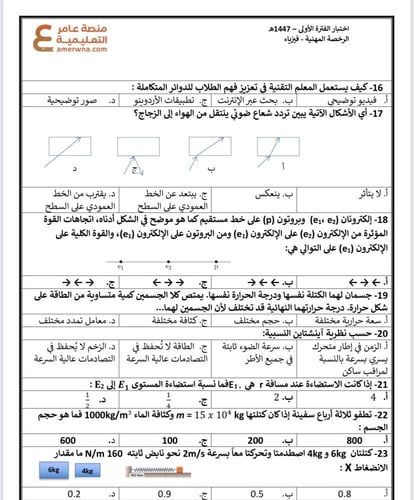 منصة عامر
التعليمية
amerwna.com
اختبار الفترة الأولى – 1447هـ
الرخصة المهنية - فيزياء
16- كيف يستعمل المعلم التقنية في تعزيز فهم الطلاب للدوائر المتكاملة :
أ. فيديو توضيحي ب. بحث عبر الإنترنت ج. تطبيقات الأردوينو د. صور توضيحية
17- أي الأشكال الآتية يبين تردد شعاع ضوئي ينتقل من الهواء إلى الزجاج؟
أ ب ج د
أ. لا يتأثر ب. ينعكس ج. يبتعد عن الخط العمودي على السطح د. يقترب من الخط العمودي على السطح
18- إلكترونان (e₁, e₂) وبروتون (p) على خط مستقيم كما هو موضح في الشكل أدناه، اتجاهات القوة
المؤثرة من الإلكترون (e₂) على الإلكترون (e₁) ومن البروتون على الإلكترون (e₁)، والقوة الكلية على
الإلكترون (e₁) على التوالي هي:
19- جسمان لهما الكتلة نفسها ودرجة الحرارة نفسها. يمتص كلا الجسمين كمية متساوية من الطاقة على
شكل حرارة. درجة حرارتهما النهائية قد تختلف لأن الجسمين لهما...
أ. سعة حرارية مختلفة ب. حجم مختلف ج. كثافة مختلفة د. معامل تمدد مختلف
20- حسب نظرية آينشتاين النسبية:
أ. الزمن في إطار متحرك يسري بسرعة بالنسبة لمراقب ساكن ب. سرعة الضوء ثابتة في جميع الأطر ج. الطاقة لا تُحفظ في التصادمات عالية السرعة د. الزخم لا يُحفظ في التصادمات عالية السرعة
21- إذا كانت الاستضاءة عند مسافة r هي E₁، فما نسبة استضاءة المستوى E₁ إلى E₂ :
أ. 4 ب. 2
22- تطفو ثلاثة أرباع سفينة إذا كان كتلتها m = 15 x 10⁴ kg وكثافة الماء 1000kg/m³ فما هو حجم
الجسم :
أ. 800 ب. 200 ج. 100 د. 600
23- كتلتان 6kg و 4kg اصطدمتا وتحركتا معاً بسرعة 2m/s نحو نابض ثابته 160 N/m ما مقدار
الانضغاط X :
6kg 4kg
أ. 0.8 ب. 0.5 ج. 0.9 د. 0.2